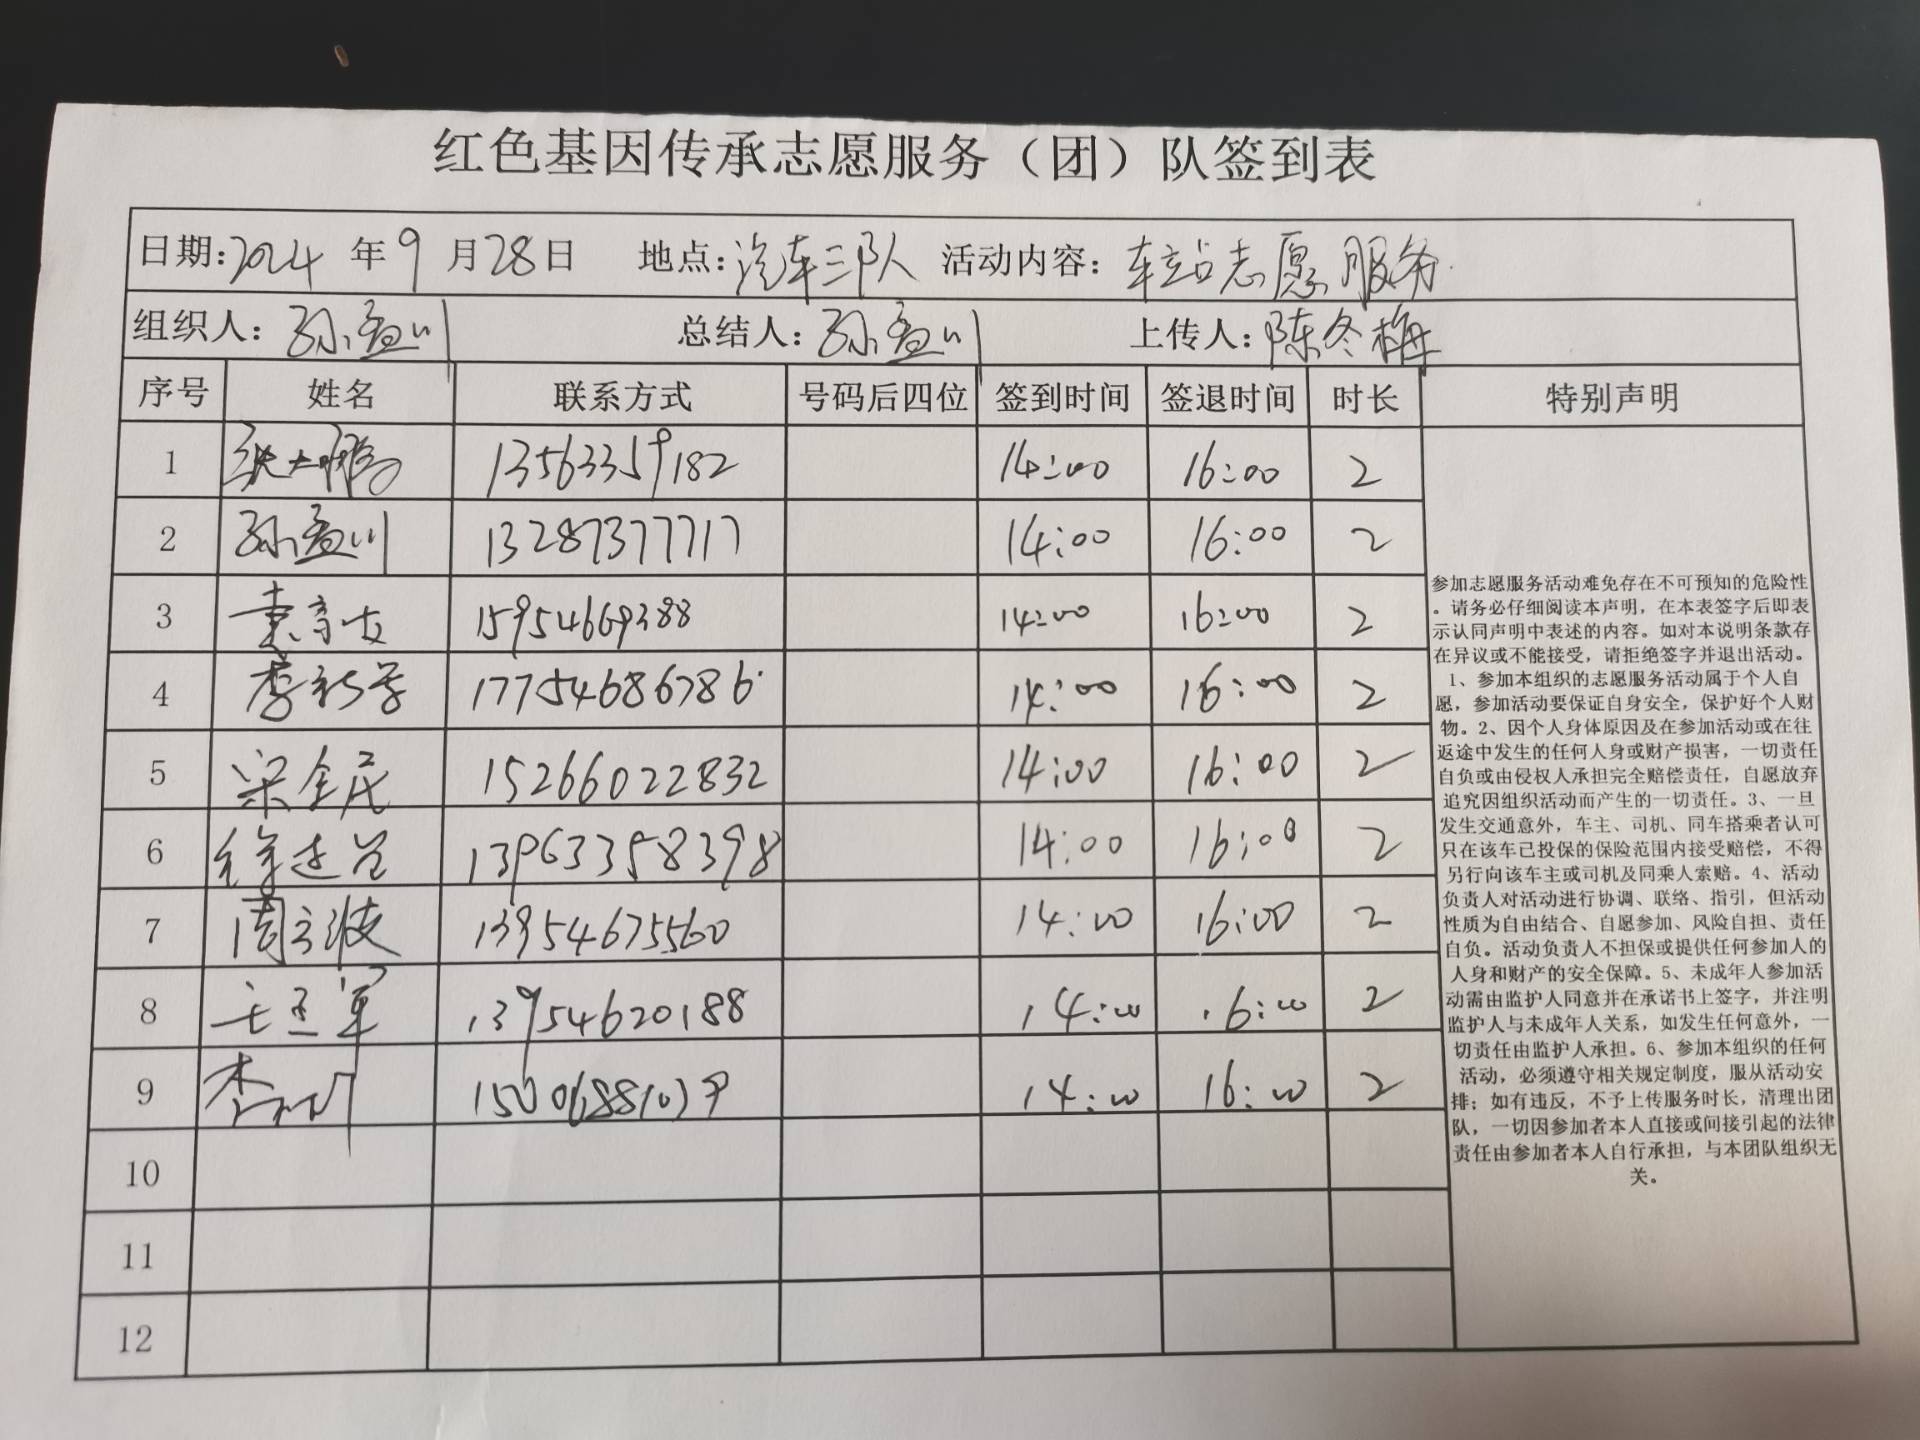 红色基因传承志愿服务（团）队签到表
日期:2024 年 9 月 28 日 地点:汽车三队 活动内容:车站志愿服务
组织人:孙孟川 总结人:孙孟川 上传人:陈冬梅
序号 姓名 联系方式 号码后四位 签到时间 签退时间 时长 特别声明
1 张大鹏 13563359182 14:00 16:00 2
2 孙孟川 13287377717 14:00 16:00 2
3 15954669388 14:00 16:00 2
4 李新学 17754686786 14:00 16:00 2
5 宋全民 15266022832 14:00 16:00 2
6 13963358398 14:00 16:00 2
7 周立波 13954675560 14:00 16:00 2
8 13954620188 14:00 16:00 2
9 14:00 16:00 2
10
11
12
参加志愿服务活动难免存在不可预知的危险性
。请务必仔细阅读本声明，在本表签字后即表
示认同声明中表述的内容。如对本说明条款存
在异议或不能接受，请拒绝签字并退出活动。
1、参加本组织的志愿服务活动属于个人自
愿，参加活动要保证自身安全，保护好个人财
物。2、因个人身体原因及在参加活动或在往
返途中发生的任何人身或财产损害，一切责任
自负或由侵权人承担完全赔偿责任，自愿放弃
追究因组织活动而产生的一切责任。3、一旦
发生交通意外，车主、司机、同车搭乘者认可
只在该车已投保的保险范围内接受赔偿，不得
另行向该车主或司机及同乘人索赔。4、活动
负责人对活动进行协调、联络、指引，但活动
性质为自由结合、自愿参加、风险自担、责任
自负。活动负责人不担保或提供任何参加人的
人身和财产的安全保障。5、未成年人参加活
动需由监护人同意并在承诺书上签字，并注明
监护人与未成年人关系，如发生任何意外，一
切责任由监护人承担。6、参加本组织的任何
活动，必须遵守相关规定制度，服从活动安
排；如有违反，不予上传服务时长，清理出团
队，一切因参加者本人直接或间接引起的法律
责任由参加者本人自行承担，与本团队组织无
关。